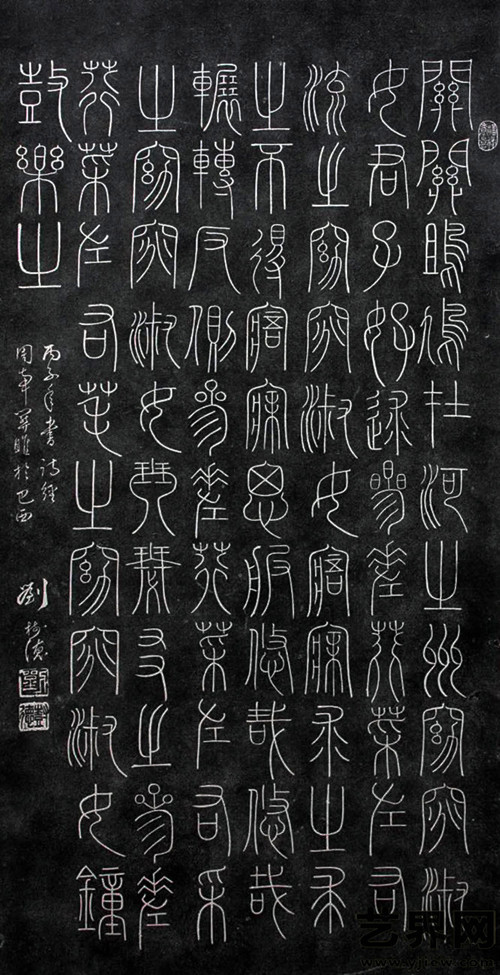 關關雎鳩在河之州窈窕淑
女君子好逑參差荇菜左右
流之窈窕淑女寤寐求之求
之不得寤寐思服悠哉悠哉
輾轉反側參差荇菜左右采
之窈窕淑女琴瑟友之參差
荇菜左右芼之窈窕淑女鐘
鼓樂之
丙子年書詩經
周南關雎於巴西
劉
艺界网